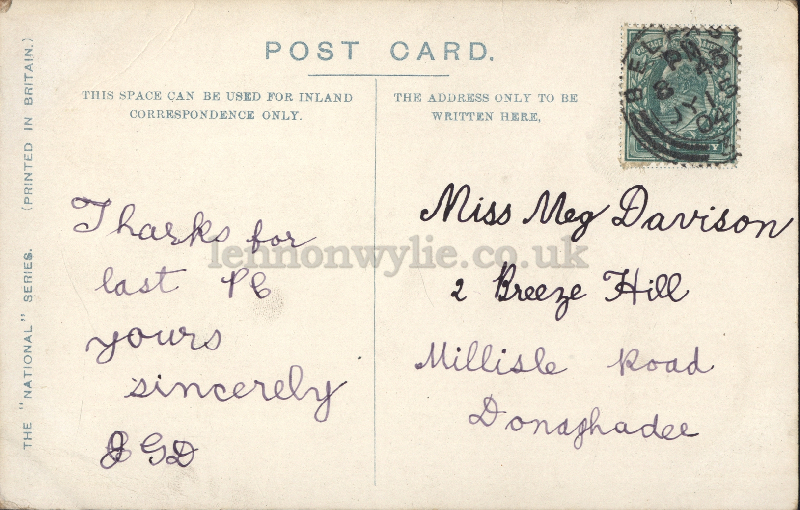 POST CARD.
THIS SPACE CAN BE USED FOR INLAND
CORRESPONDENCE ONLY.
THE ADDRESS ONLY TO BE
WRITTEN HERE.
THE "NATIONAL" SERIES. (PRINTED IN BRITAIN.)
BELFAST
8 PM
JY 1
04
Thanks for
last PC
yours
sincerely
JGD
Miss Meg Davison
2 Breeze Hill
Millisle Road
Donaghadee
lennonwylie.co.uk